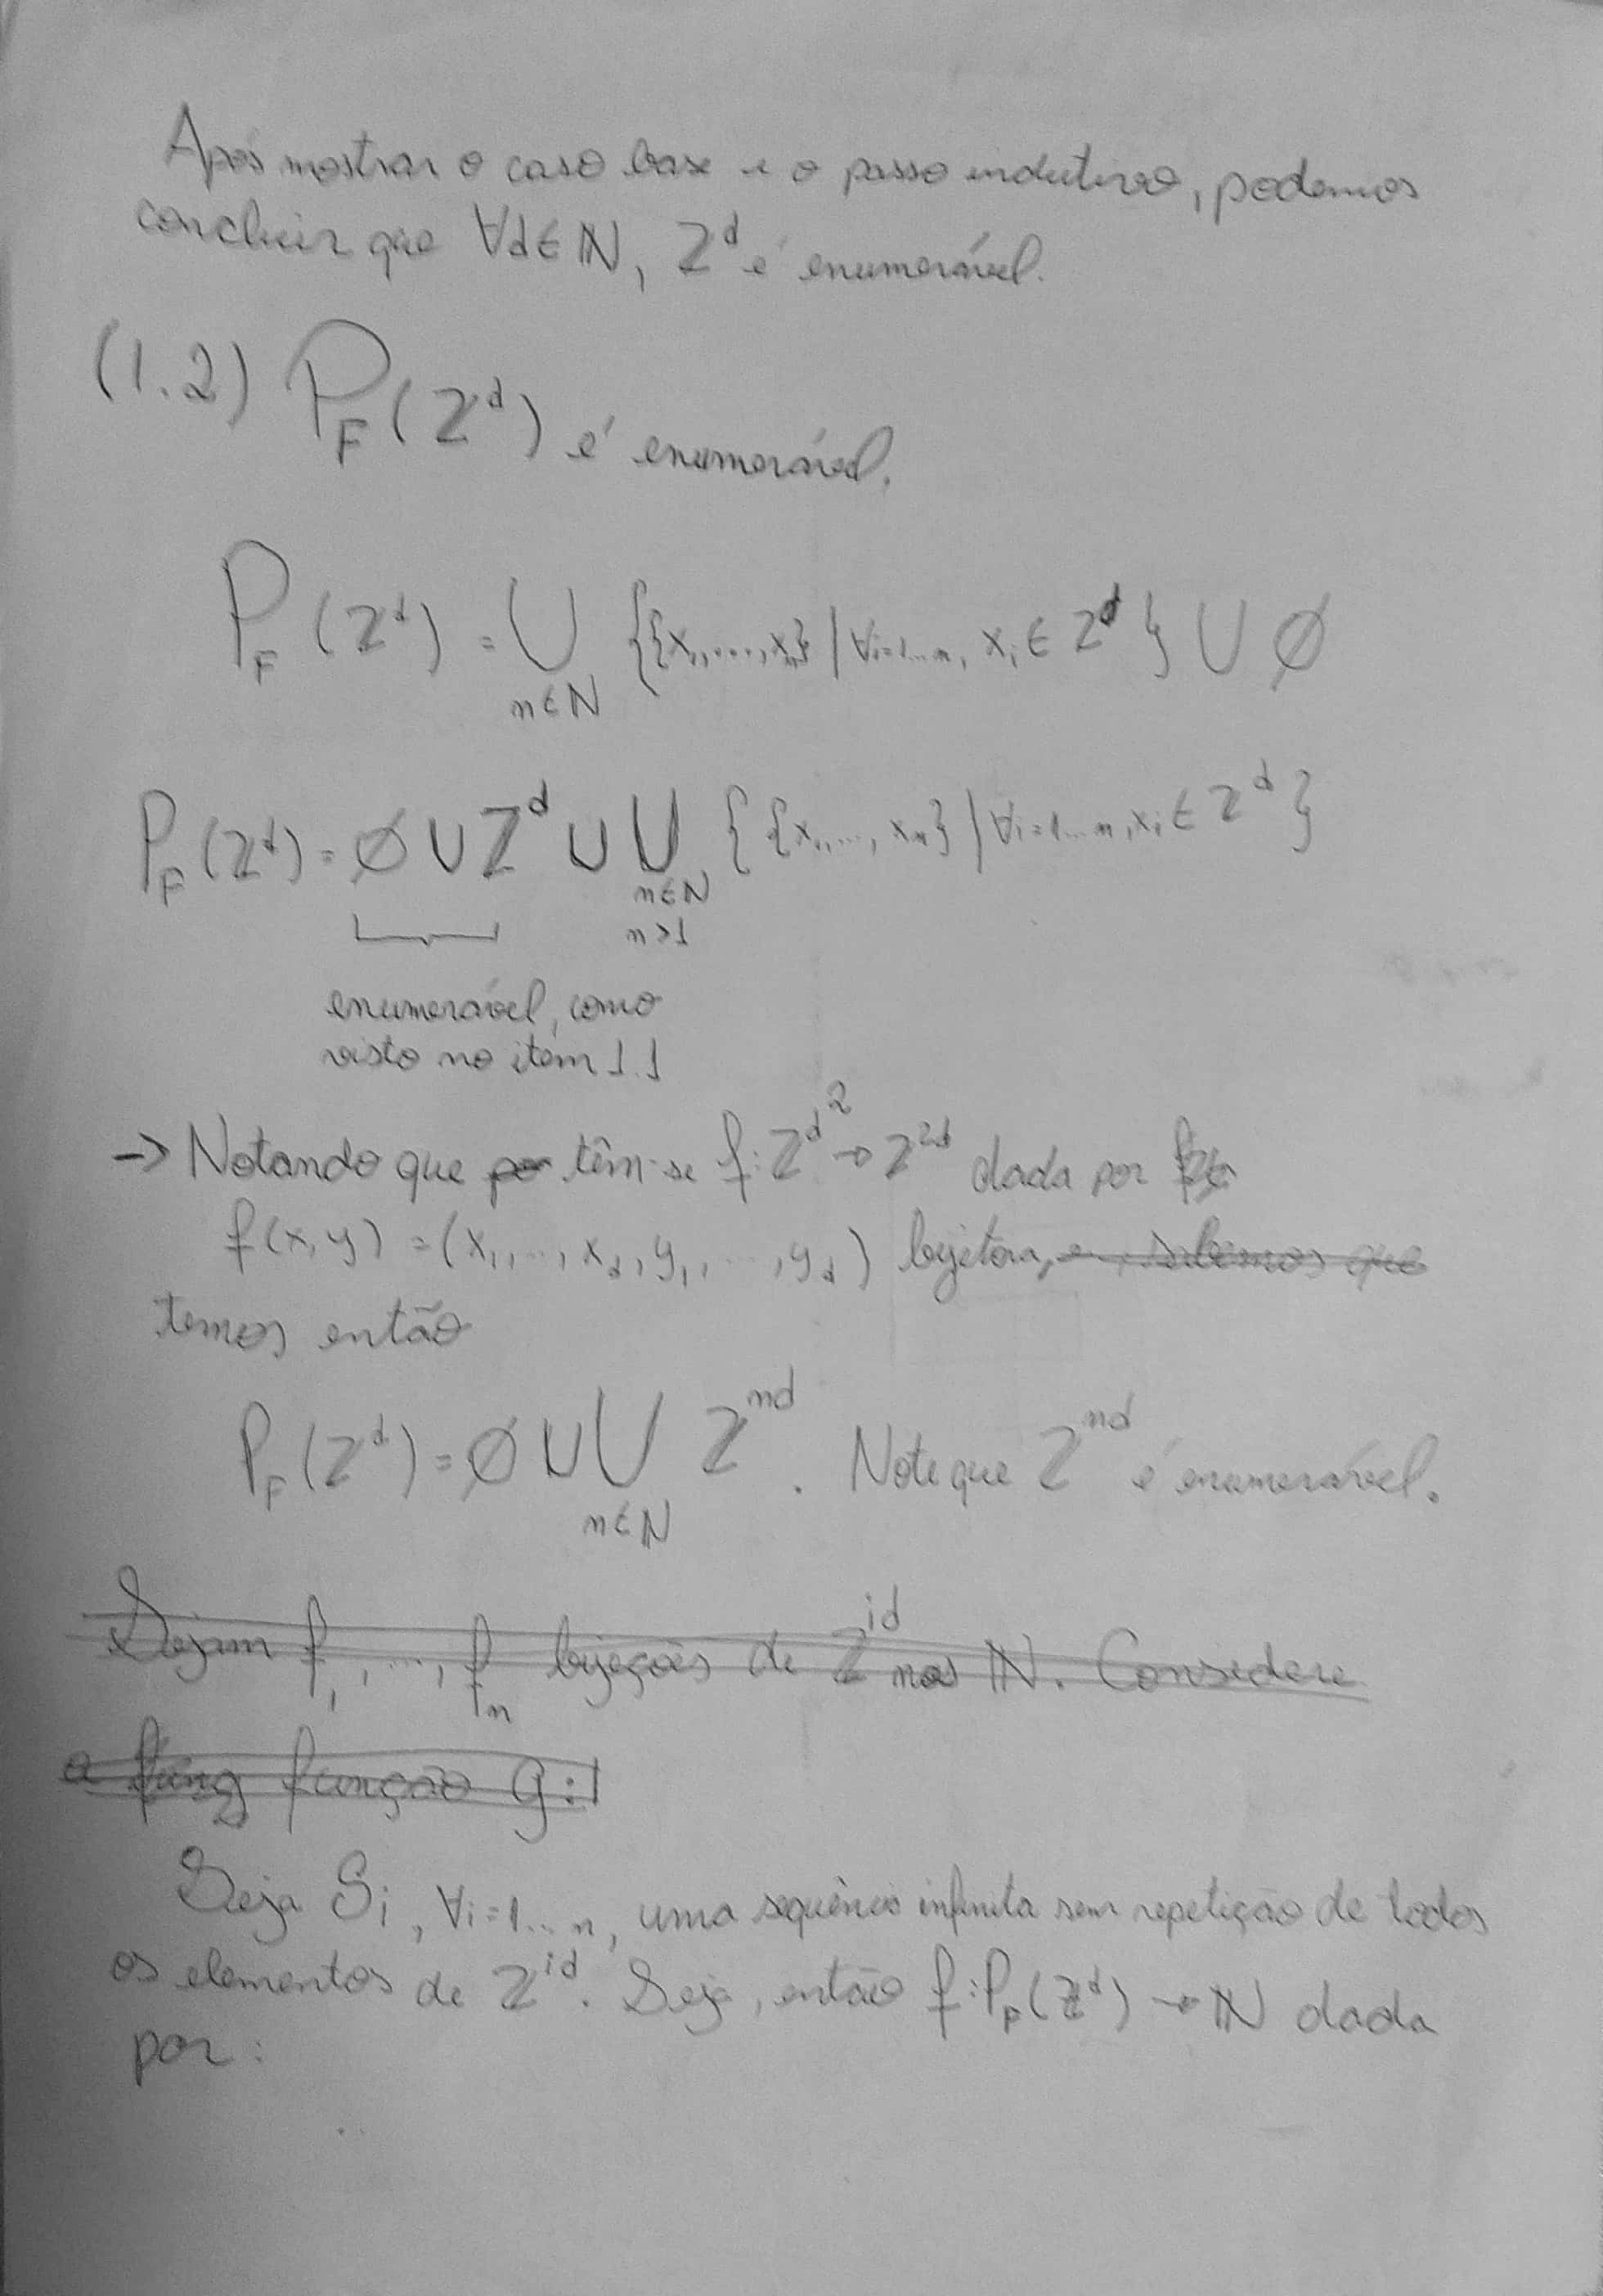 Após mostrar o caso base e o passo indutivo, podemos
concluir que ∀d∈ℕ, ℤ^d é enumerável.
(1.2) P_F(ℤ^d) é enumerável.
P_F(ℤ^d) = ⋃_{n∈ℕ} {{x_1,...,x_n} | ∀i=1...n, x_i ∈ ℤ^d} ∪ ∅
P_F(ℤ^d) = ∅ ∪ ℤ^d ∪ ⋃_{n∈ℕ, n>1} {{x_1,...,x_n} | ∀i=1...n, x_i ∈ ℤ^d}
enumerável, como
visto no item 1.1
→ Notando que têm-se f: ℤ^{d^2} → ℤ^{2d} dada por
f(x,y) = (x_1,...,x_d,y_1,...,y_d) bijetora, e, sabemos que
temos então
P_F(ℤ^d) = ∅ ∪ ⋃_{n∈ℕ} ℤ^{nd}. Note que ℤ^{nd} é enumerável.
Sejam f_1,...,f_n bijeções de ℤ^{id} nos ℕ. Considere
a função g:
Seja S_i, ∀i=1...n, uma sequência infinita sem repetição de todos
os elementos de ℤ^{id}. Seja, então f: P_F(ℤ^d) → ℕ dada
por: